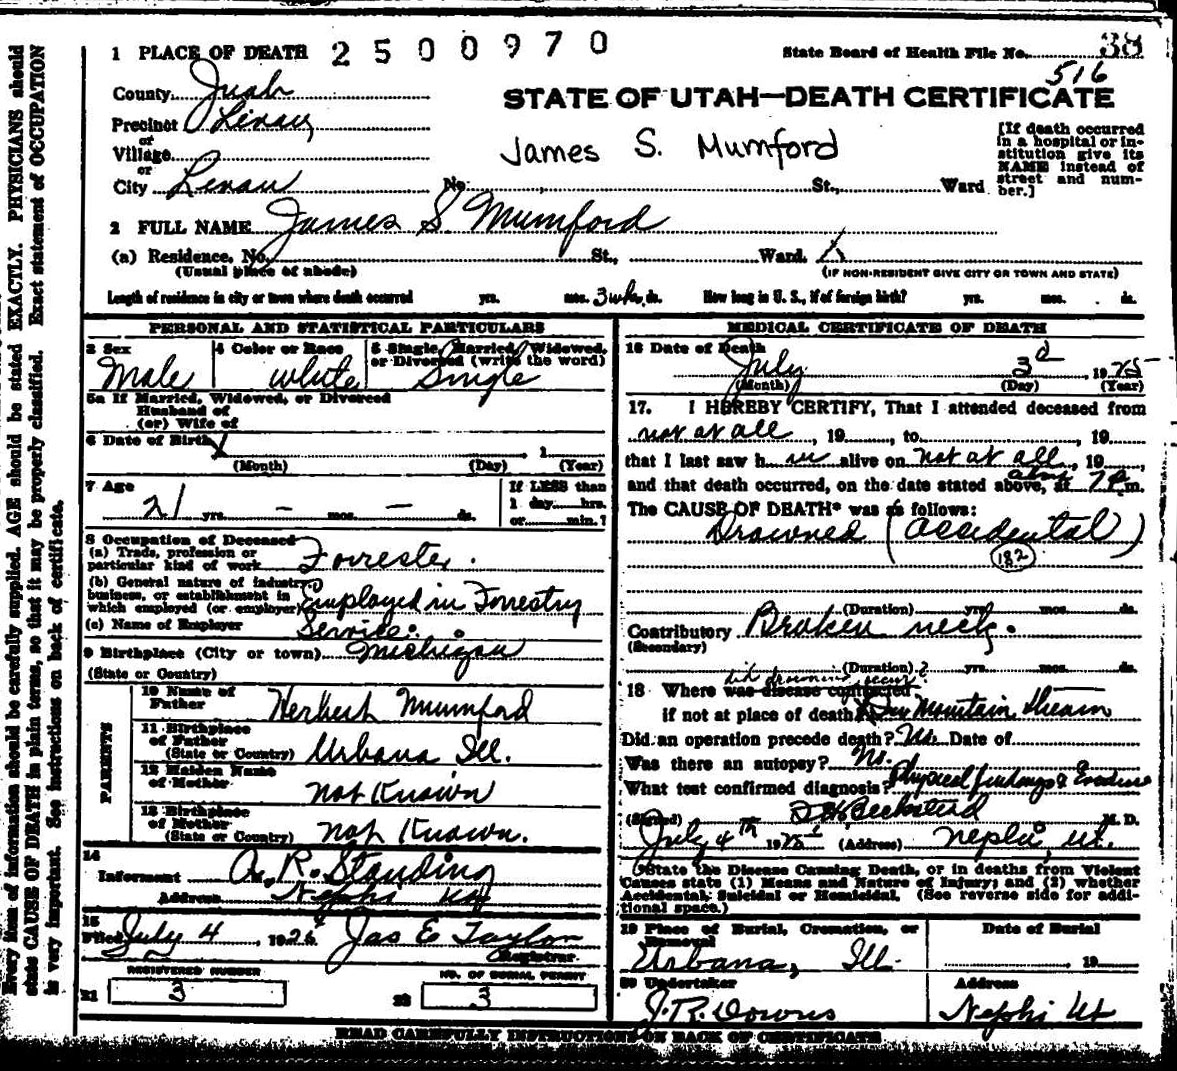 1 PLACE OF DEATH 2500970 State Board of Health File No. 38
516
County Juab
STATE OF UTAH—DEATH CERTIFICATE
Precinct Levan
or
Village
or
City Levan No. St., Ward
James S. Mumford
[If death occurred
in a hospital or in-
stitution give its
NAME instead of
street and num-
ber.]
2 FULL NAME James S. Mumford
(a) Residence, No. St., Ward.
(Usual place of abode) (IF NON-RESIDENT GIVE CITY OR TOWN AND STATE)
Length of residence in city or town where death occurred yrs. mos. 3 wks. ds. How long in U. S., if of foreign birth? yrs. mos. ds.
PERSONAL AND STATISTICAL PARTICULARS
3 Sex Male
4 Color or Race white
5 Single, Married, Widowed,
or Divorced (write the word)
Single
5a If Married, Widowed, or Divorced
Husband of
(or) Wife of
6 Date of Birth , 1
(Month) (Day) (Year)
7 Age
21 yrs. - mos. - ds.
If LESS than
1 day hrs.
or min.?
8 Occupation of Deceased
(a) Trade, profession or
particular kind of work Forrester.
(b) General nature of industry,
business, or establishment in
which employed (or employer) Employed in Forrestry
(c) Name of Employer Service.
9 Birthplace (City or town) Michigan
(State or Country)
PARENTS
10 Name of
Father Herbert Mumford
11 Birthplace
of Father
(State or Country) Urbana Ill.
12 Maiden Name
of Mother not Known
13 Birthplace
of Mother
(State or Country) not Known.
14
Informant A. R. Standing
Address Nephi Ut
15
Filed July 4, 1925 Jas E Taylor
Registrar
REGISTERED NUMBER
21 3
NO. OF BURIAL PERMIT
22 3
MEDICAL CERTIFICATE OF DEATH
16 Date of Death
July 3d, 1925
(Month) (Day) (Year)
17. I HEREBY CERTIFY, That I attended deceased from
not at all, 19 , to , 19
that I last saw h im alive on not at all, 19 ,
and that death occurred, on the date stated above, at about 7 P.m.
The CAUSE OF DEATH* was as follows:
Drowned (accidental)
182
(Duration) yrs. mos. ds.
Contributory Broken neck.
(Secondary)
(Duration) yrs. mos. ds.
did drowning occur?
18 Where was disease contracted
if not at place of death? In Mountain Stream
Did an operation precede death? No. Date of
Was there an autopsy? No.
What test confirmed diagnosis? Physical findings & Evidence
(Signed) Beckstead M. D.
July 4th 1925 (Address) Nephi, Ut.
*State the Disease Causing Death, or in deaths from Violent
Causes state (1) Means and Nature of Injury; and (2) whether
Accidental, Suicidal or Homicidal. (See reverse side for addi-
tional space.)
19 Place of Burial, Cremation, or
Removal
Urbana, Ill.
Date of Burial
, 19
20 Undertaker
J. R. Downs
Address
Nephi Ut
READ CAREFULLY INSTRUCTIONS ON BACK OF CERTIFICATE
Every item of information should be carefully supplied. AGE should be stated EXACTLY. PHYSICIANS should
state CAUSE OF DEATH in plain terms, so that it may be properly classified. Exact statement of OCCUPATION
is very important. See instructions on back of certificate.